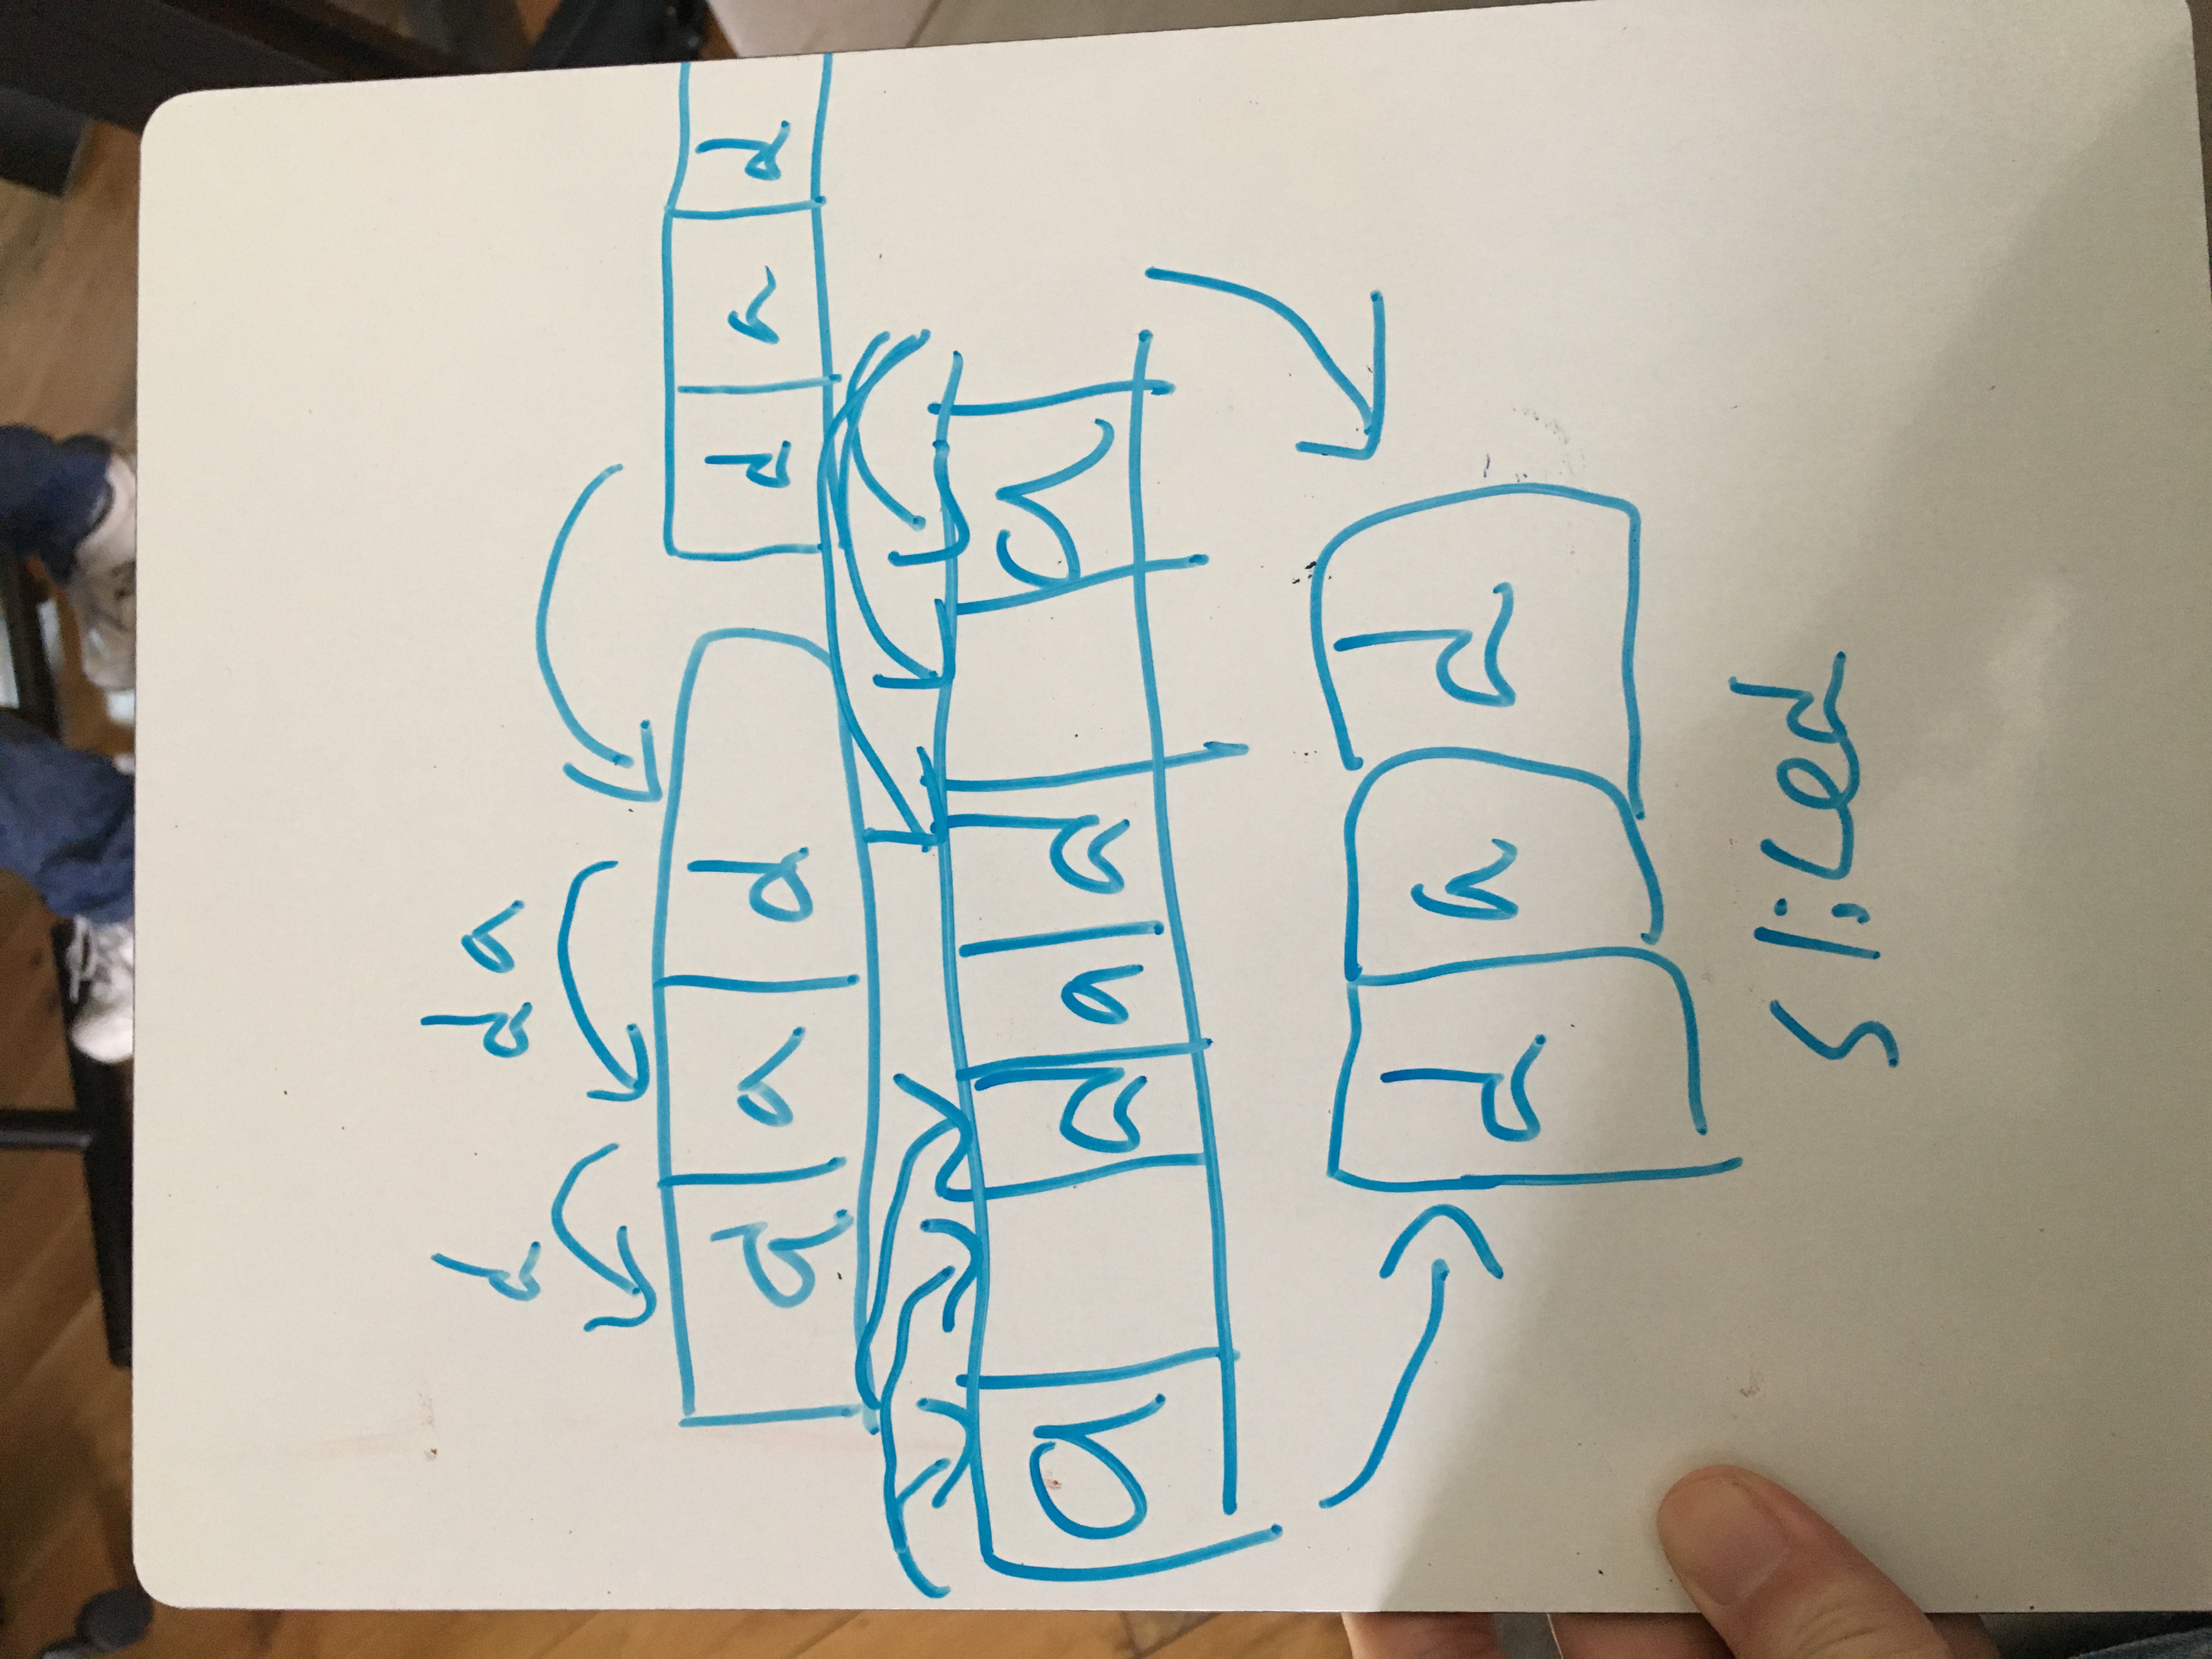 d da
d a d d a d
a d a d a
d a d
sliced